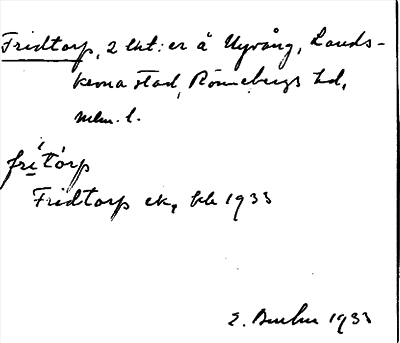 Fridtorp, 2 lht:er å Nyvång, Lands-
krona stad, Rönnebergs hd,
Mlm. l.
fritórp
Fridtorp ek, kb 1933
E. 1933